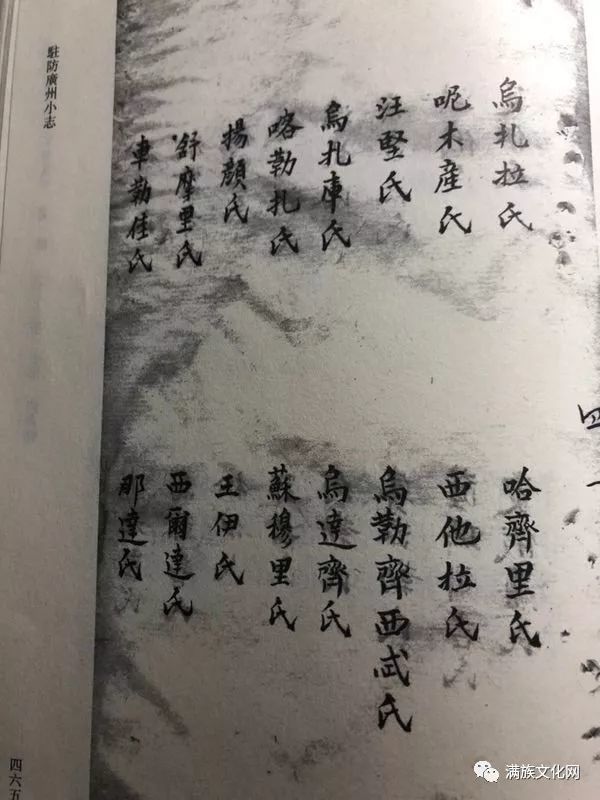 烏扎拉氏
呢木產氏
汪堅氏
烏扎庫氏
喀勒扎氏
揚顏氏
舒摩里氏
車勒佳氏
哈齊里氏
西他拉氏
烏勒齊西忒氏
烏達齊氏
蘇穆里氏
王伊氏
西爾達氏
那達氏
駐防廣州小志
四六五
满族文化网